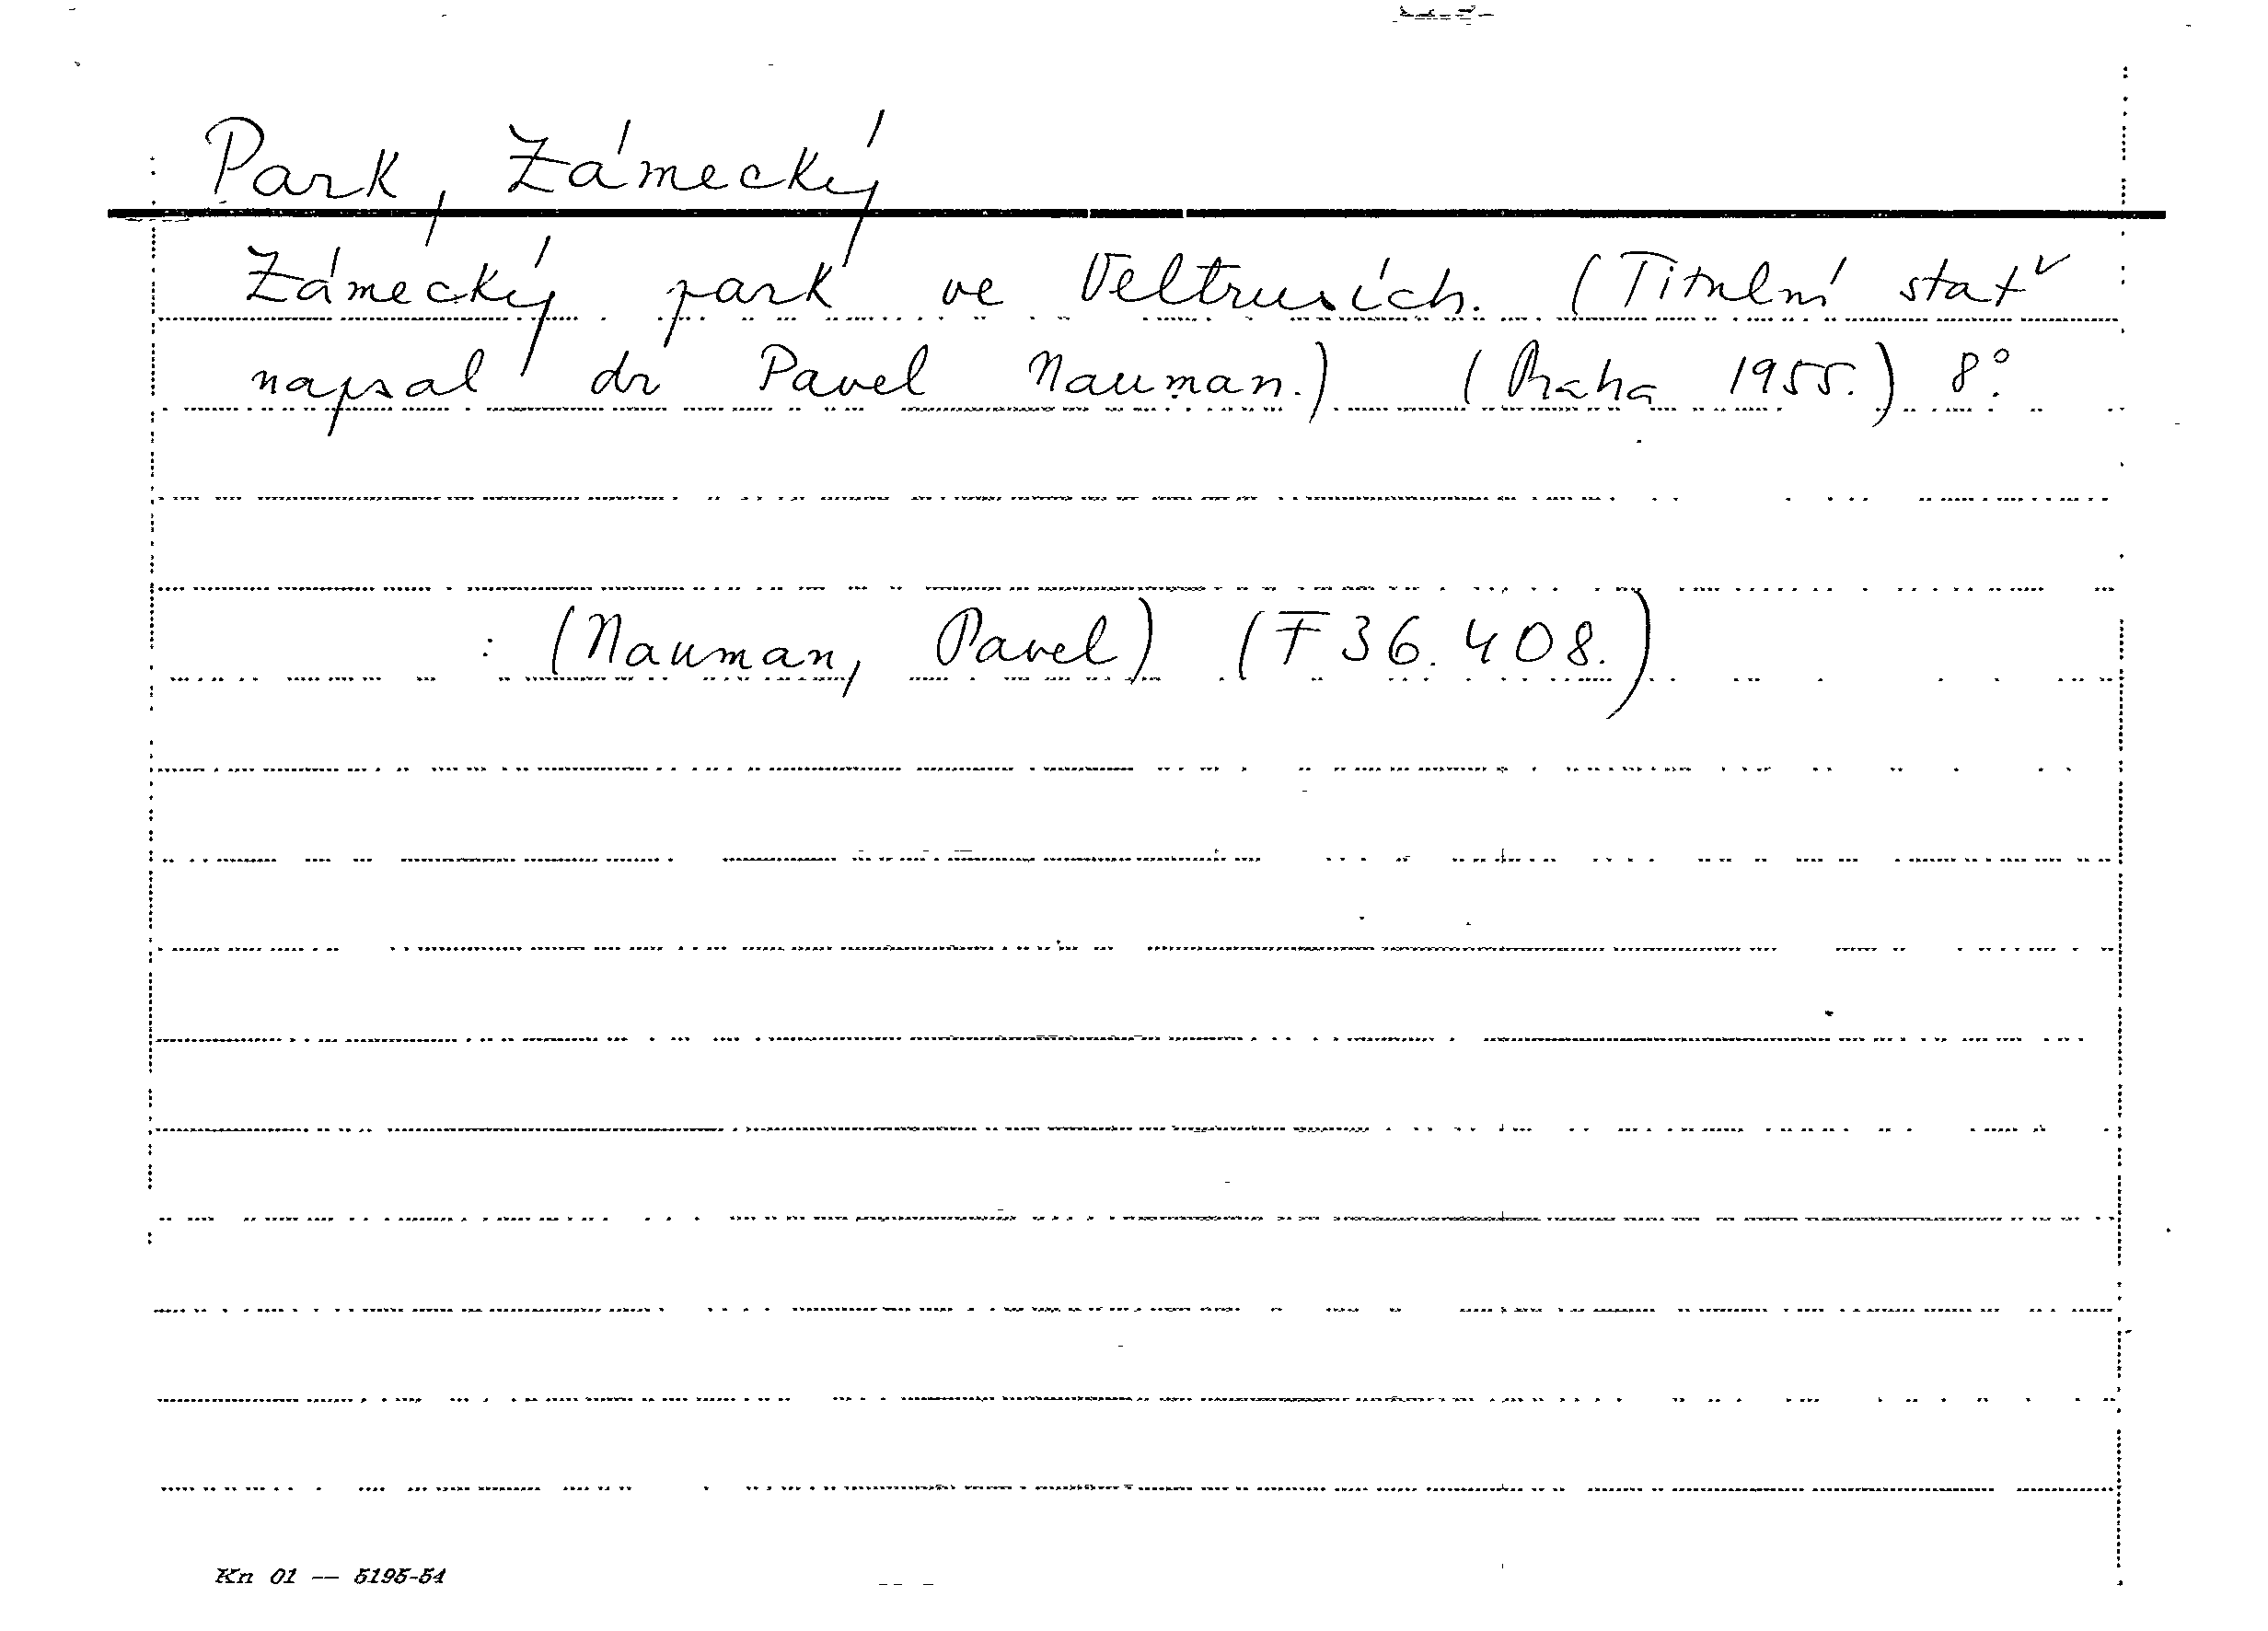 Park, Zámecký
Zámecký park ve Veltrusích. (Titulní stať
napsal dr Pavel Nauman.) (Praha 1955.) 8°.
: (Nauman, Pavel) (F 36.408.)
Kn 01 — 5195-54